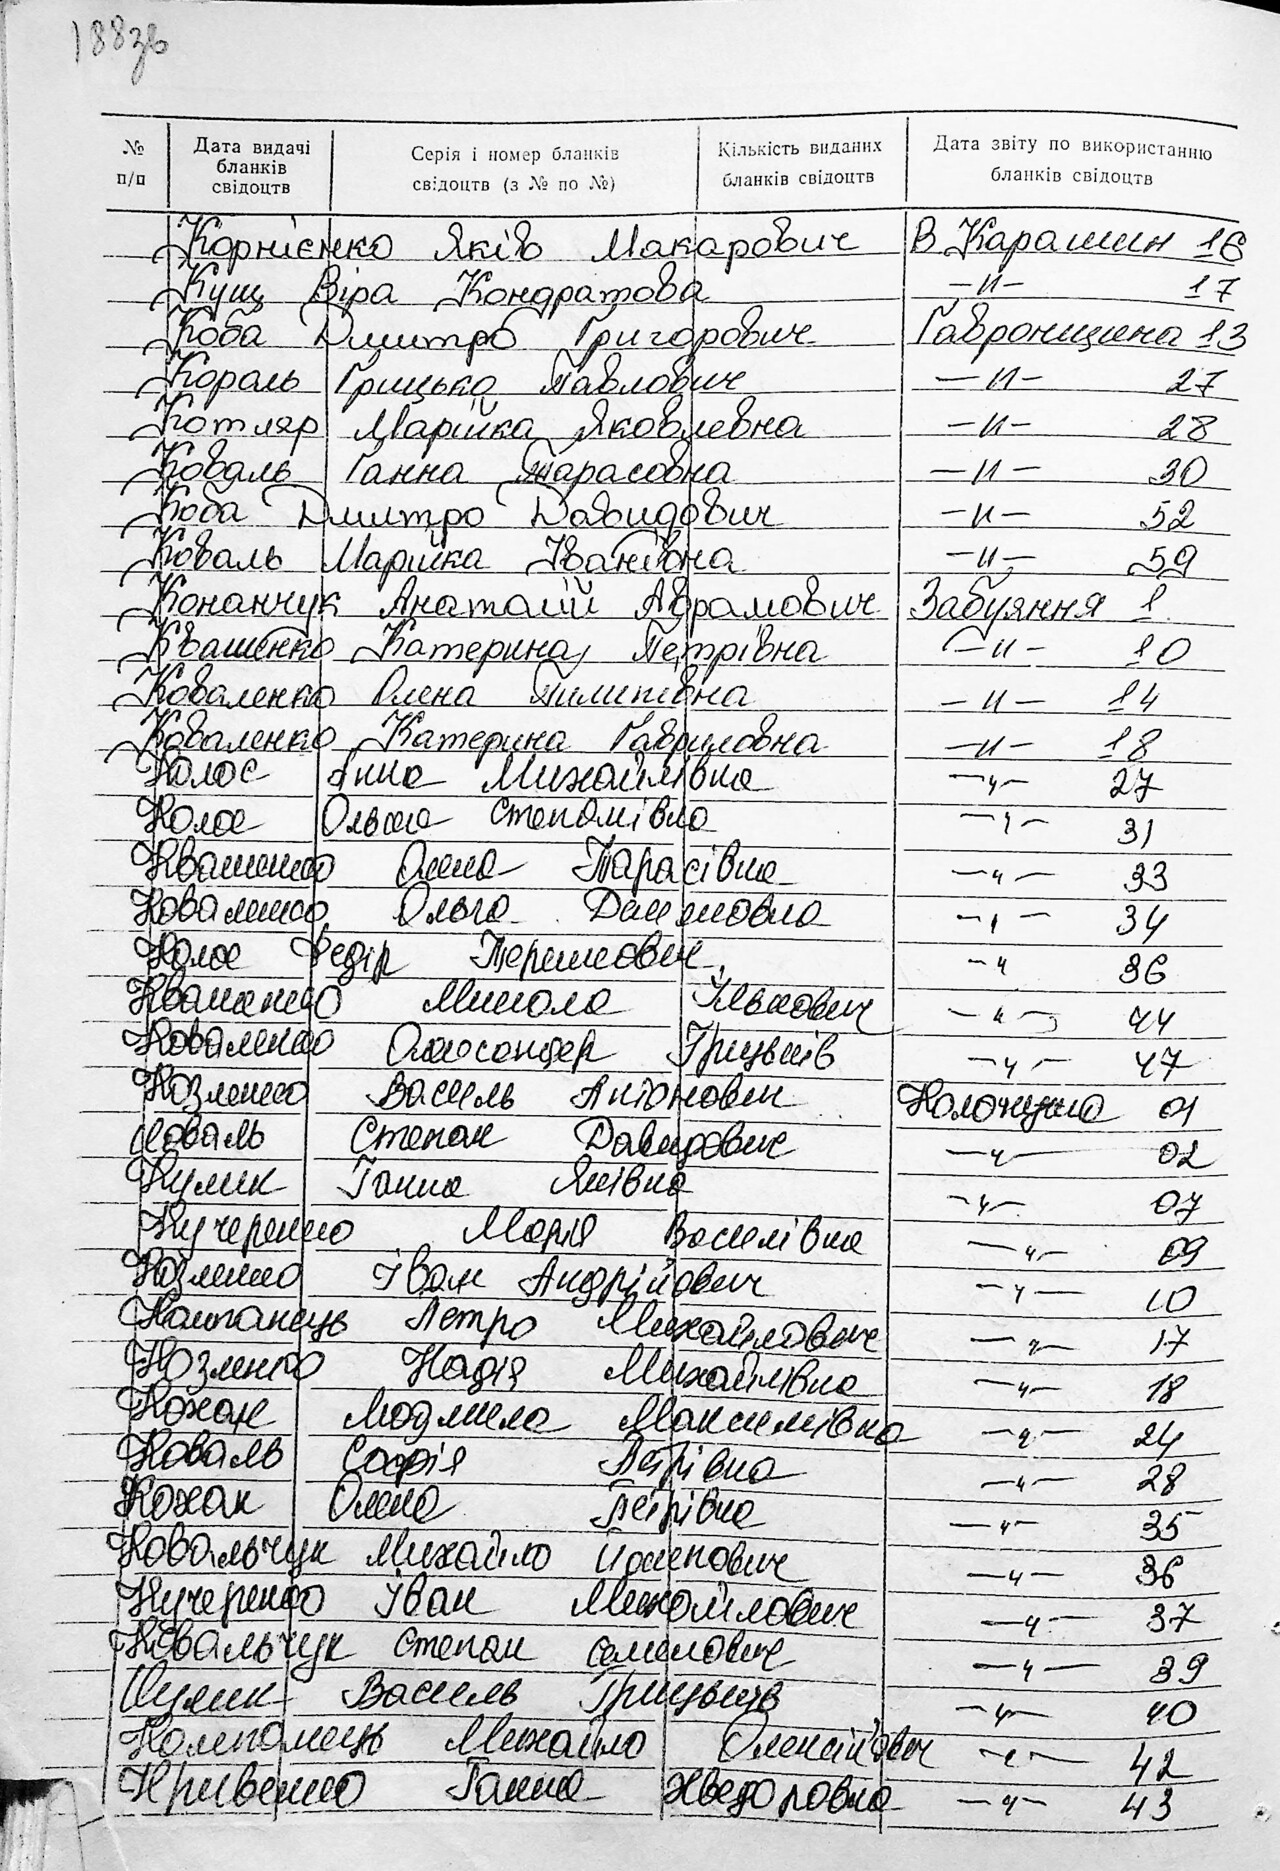 188зв
№ п/п Дата видачі бланків свідоцтв Серія і номер бланків свідоцтв (з № по №) Кількість виданих бланків свідоцтв Дата звіту по використанню бланків свідоцтв
Корнієнко Яків Макарович В Карашин 16
Кущ Віра Кондратова –"– 17
Коба Дмитро Григорович Гавронщина 13
Король Грицько Павлович –"– 27
Котляр Марійка Яковлевна –"– 28
Коваль Ганна Тарасовна –"– 30
Коба Дмитро Давидович –"– 52
Коваль Марійка Іванівна –"– 59
Конанчук Анатолій Абрамович Забуяння 1
Квашенко Катерина Петрівна –"– 10
Коваленко Олена Пилипівна –"– 14
Коваленко Катерина Гавриловна –"– 18
Колос Анна Михайлівна –"– 27
Колос Ольга Степанівна –"– 31
Квашенко Олена Тарасівна –"– 33
Коваленко Ольга Демяновна –"– 34
Колос Федір 36
Квашенко Микола Ількович –"– 44
Коваленко Олександер Грицьків –"– 47
Козленко Василь Антонович Колонщина 01
Коваль Степан Давидович –"– 02
Кулик Ганна Яківна –"– 07
Кучеренко Марія Василівна –"– 09
Козленко Іван Андрійович –"– 10
Каштанець Петро Михайлович –"– 17
Козленко Надія Михайлівна –"– 18
Кохан Людмила Максимівна –"– 24
Коваль Софія Петрівна –"– 28
Кохан Олена Петрівна –"– 35
Ковальчук Михайло Йосипович –"– 36
Кучеренко Іван Михайлович –"– 37
Ковальчук Степан Семенович –"– 39
Кулик Василь Грицьків –"– 40
Михайло Олексійович –"– 42
Кривенко Ганна Хведоровна –"– 43